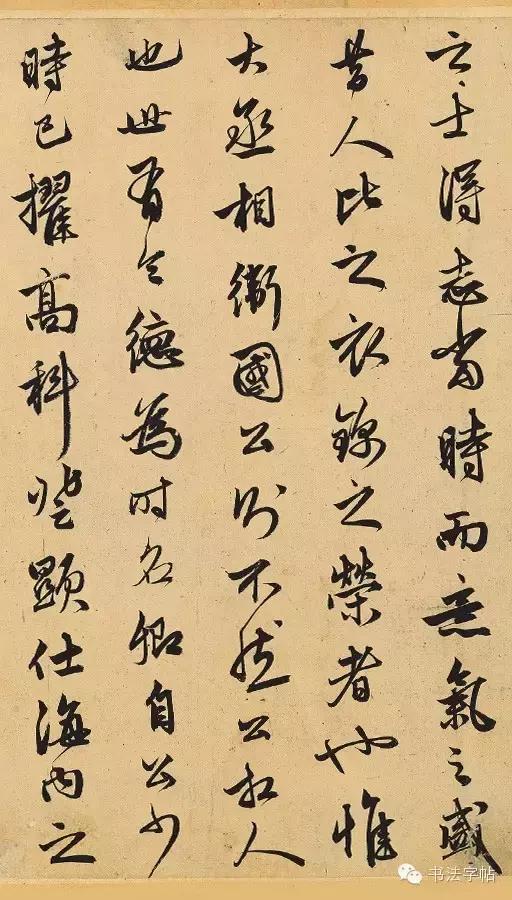 之士得志當時而意氣之盛
昔人比之衣錦之榮者也惟
大丞相衛國公則不然公相人
也世有令德為時名卿自公少
時已擢高科登顯仕海内之
书法字帖